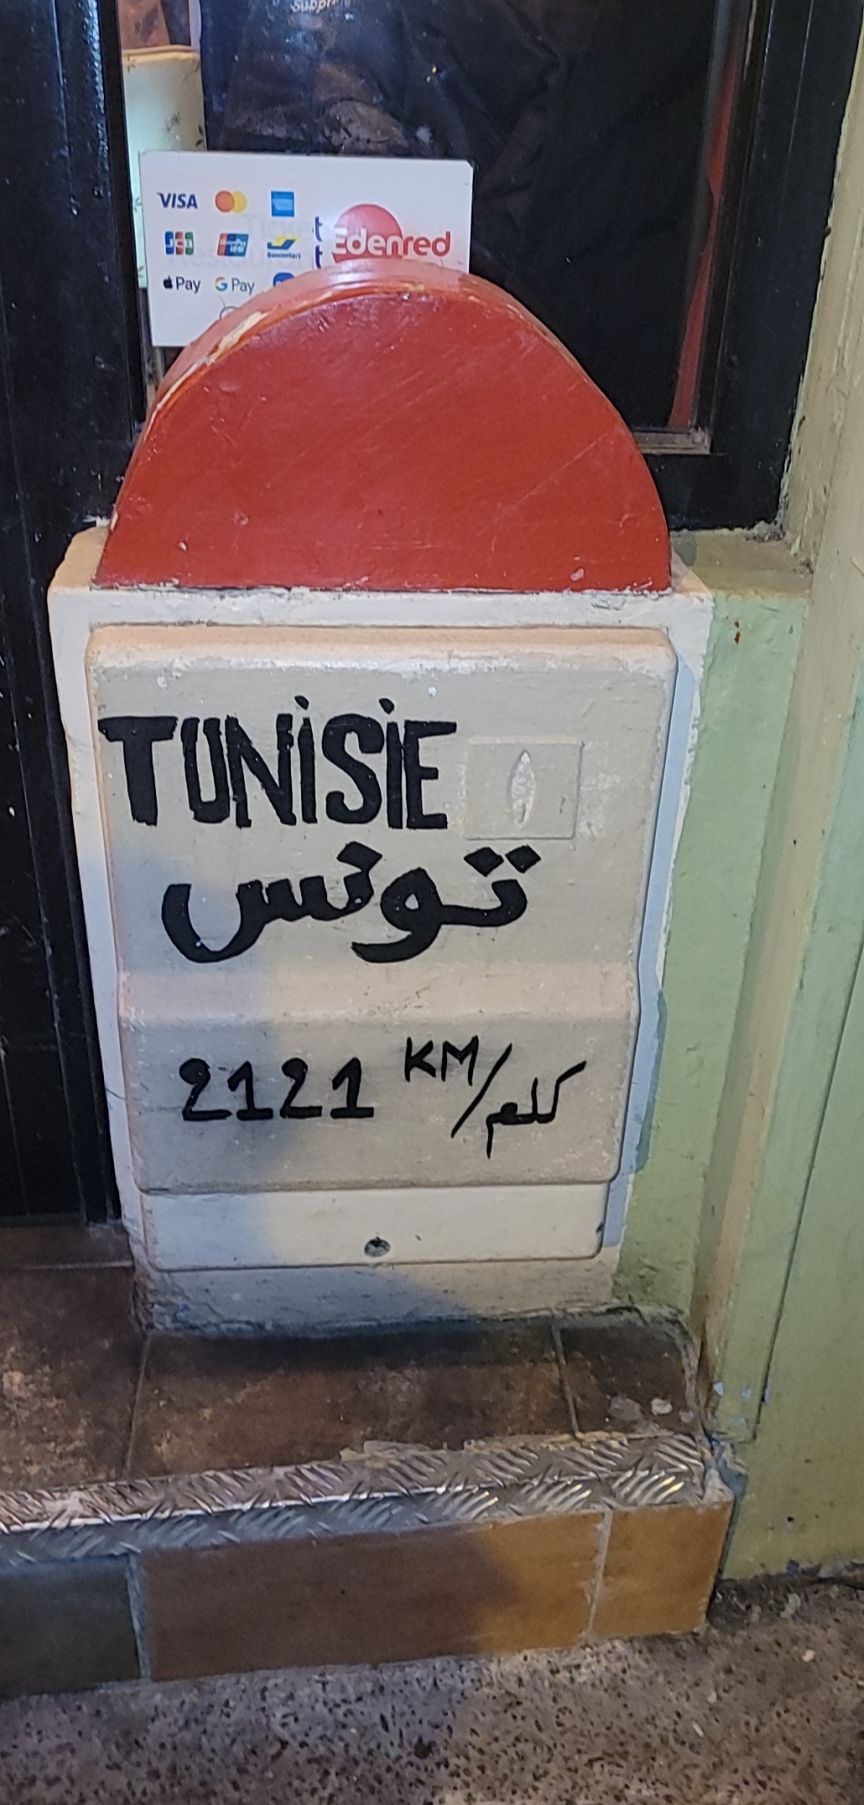 VISA
JCB
UnionPay
Bancontact
Edenred
Pay
G Pay
TUNiSiE
تونس
2121 KM/كلم